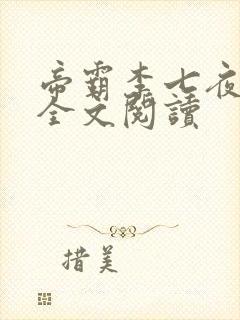 帝霸李七夜
全文閱讀
措美